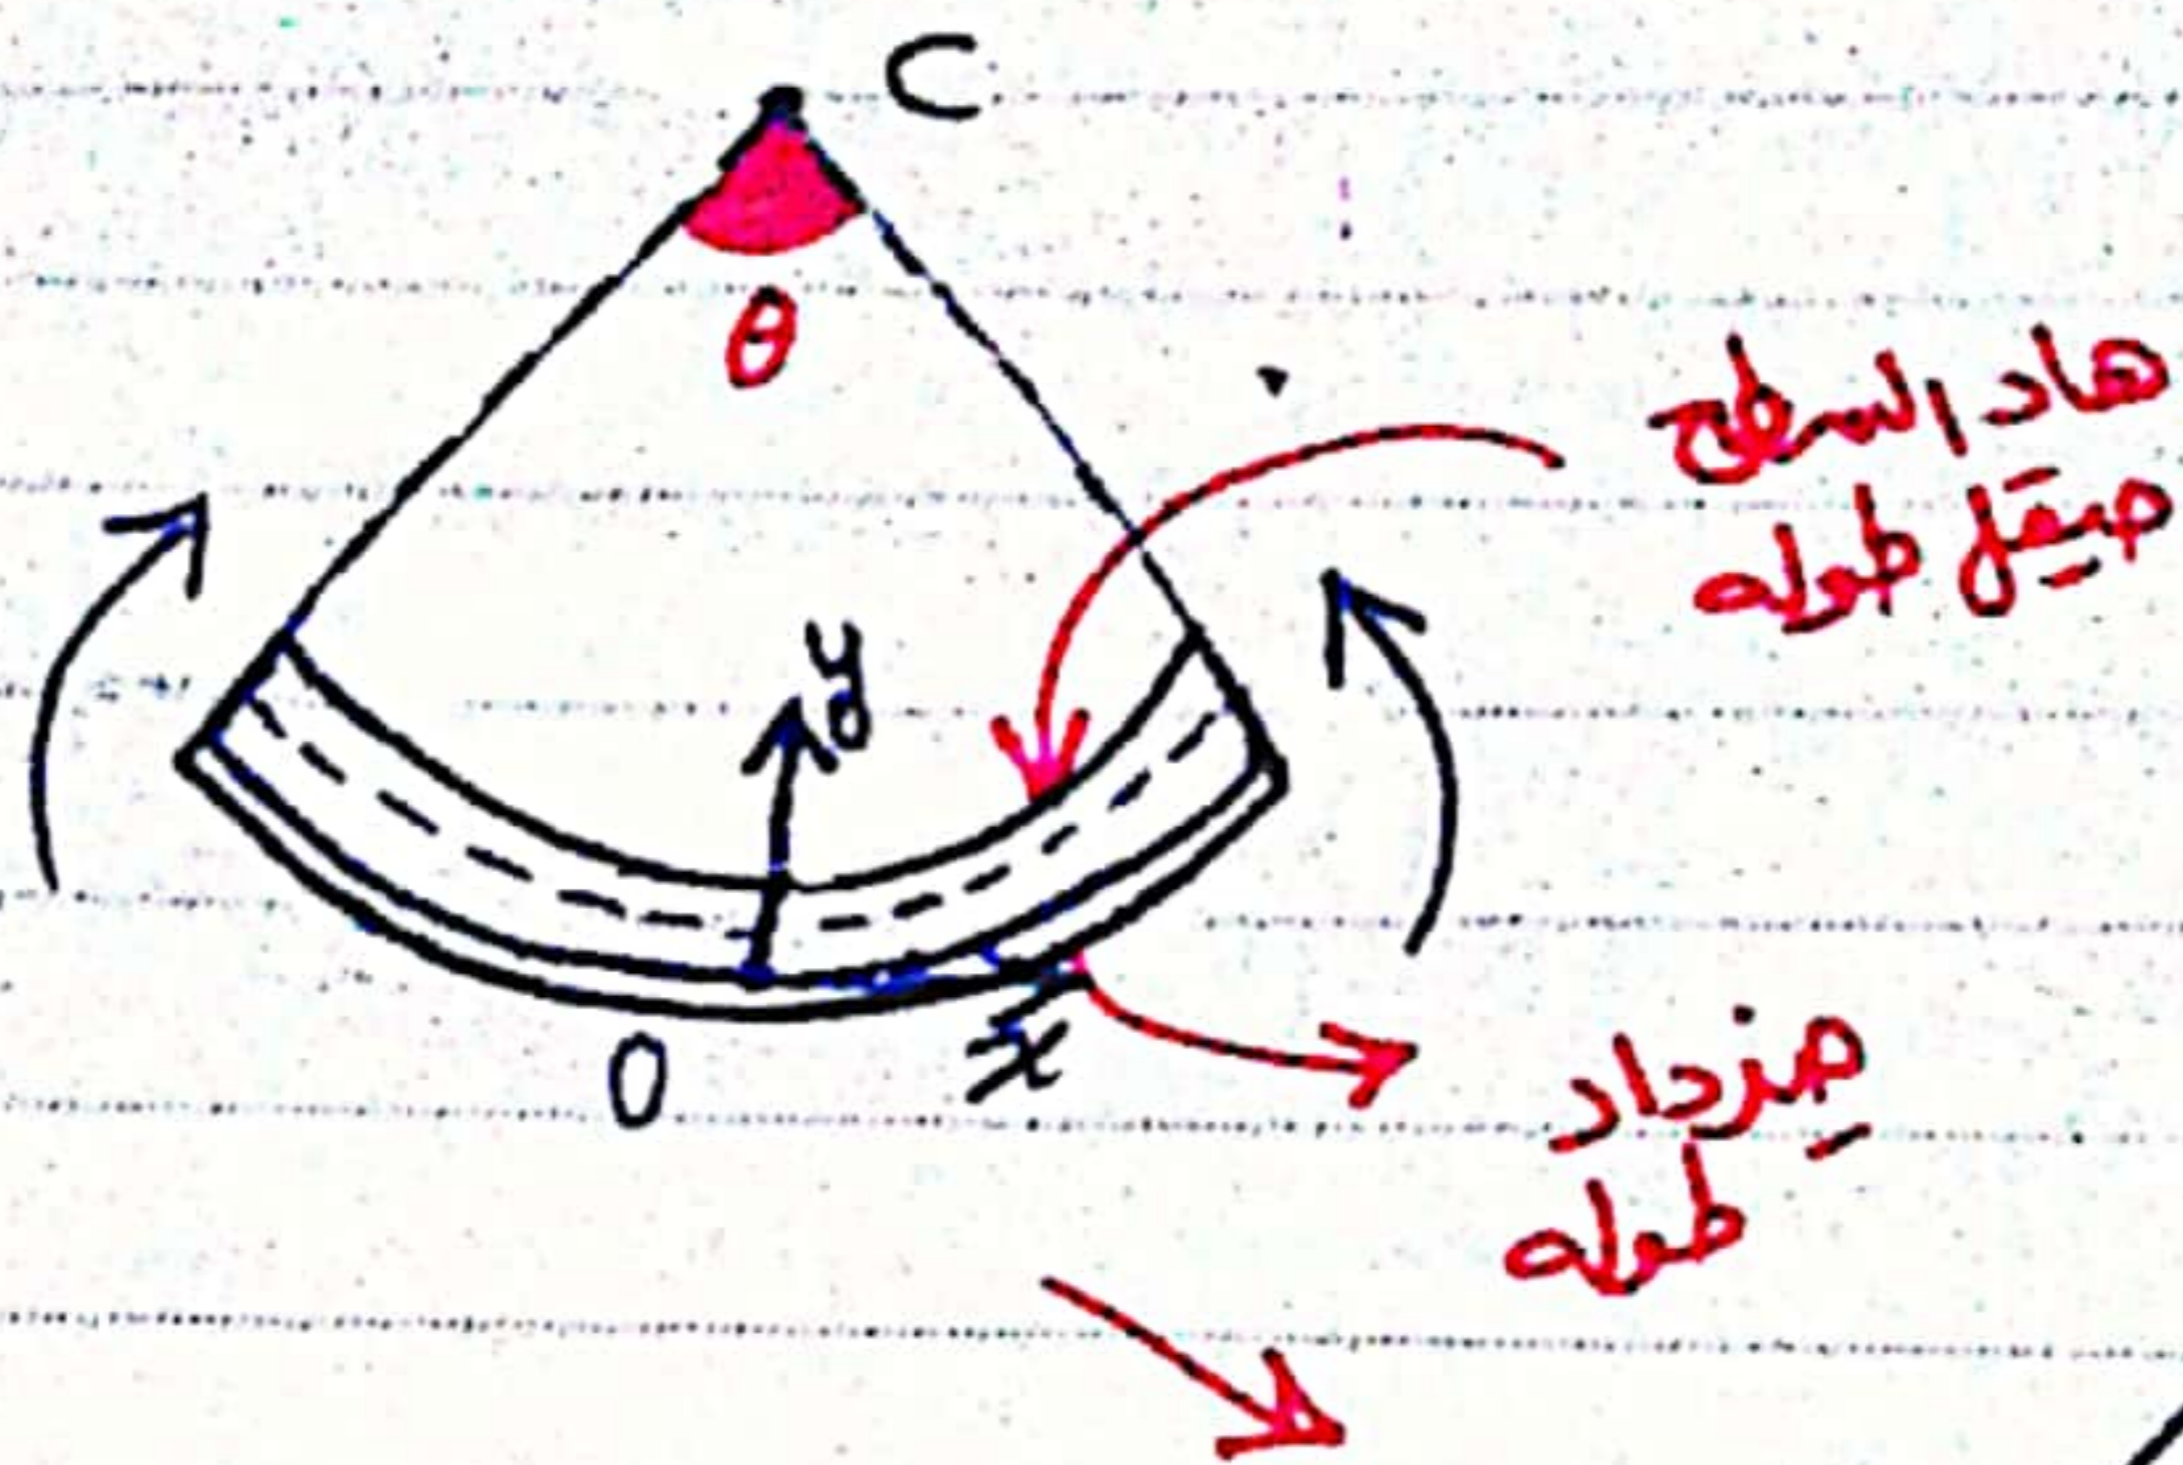 C
θ
هاد السطح
حيقل طوله
y
O
x
حيزداد
طوله